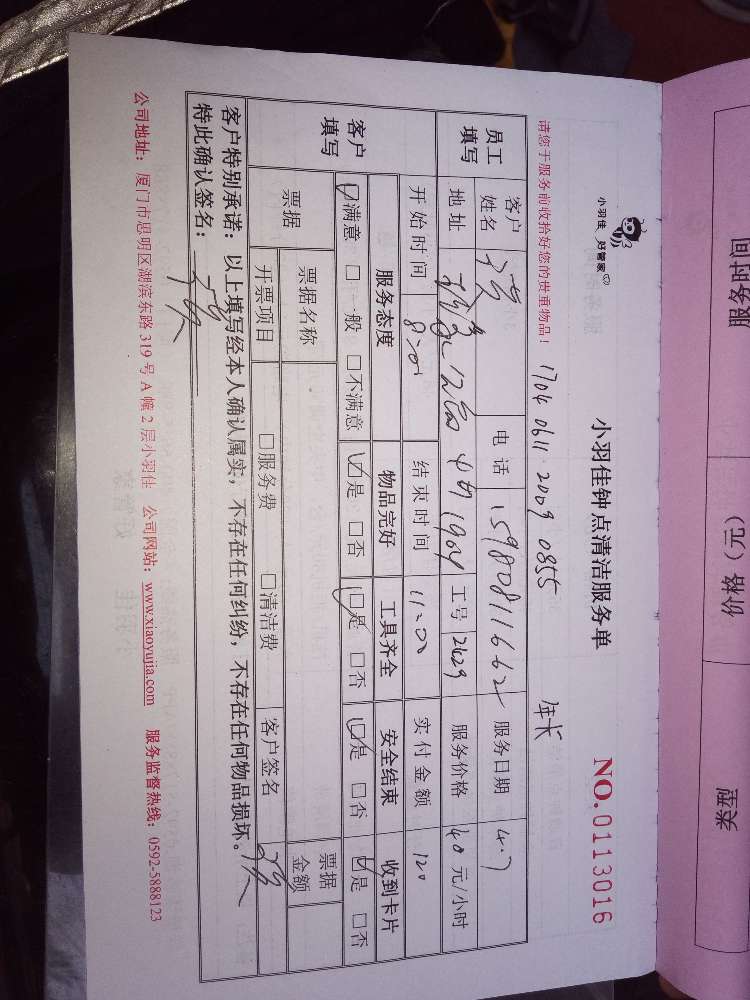 小羽佳 好管家
小羽佳钟点清洁服务单
NO.0113016
请您于服务前收拾好您的贵重物品!
1704 0611 2009 0855
年长
员工填写
客户姓名
电话 15980811662
服务日期 4.7
地址
1904
工号 2629
服务价格 40 元/小时
开始时间 8:00
结束时间 11:00
实付金额 120
客户填写
服务态度 物品完好 工具齐全 安全结束 收到卡片
☑满意 □一般 □不满意 ☑是 □否 ☑是 □否 ☑是 □否 ☑是 □否
票据
票据名称
票据金额
开票项目 □服务费 □清洁费 客户签名
客户特别承诺:以上填写经本人确认属实,不存在任何纠纷,不存在任何物品损坏。
特此确认签名:
公司地址:厦门市思明区湖滨东路 319 号 A 幢 2 层小羽佳 公司网站:www.xiaoyujia.com 服务监督热线:0592-5888123
服务时间
价格(元)
类型